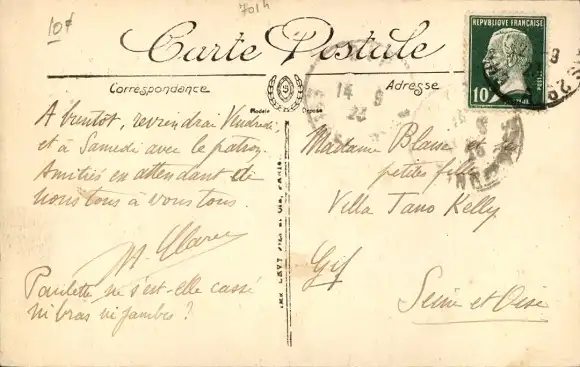 10f
701h
Carte Postale
Correspondance
Adresse
Modèle Déposé
REPUBLIQUE FRANÇAISE
10
POSTES
14 9
23
A bientôt, reviendrai Vendredi,
et à Samedi avec le patron.
Amitiés en attendant de
nous tous à vous tous.
Paulette ne s'est-elle cassé
ni bras ni jambes ?
Madame Blanc et ses
petites filles
Villa Tano Kelly
Gif
Seine et Oise